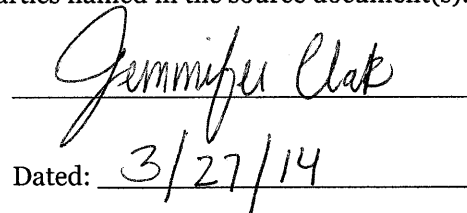 arties named in the source document(s).
Jennifer Clark
Dated: 3/27/14